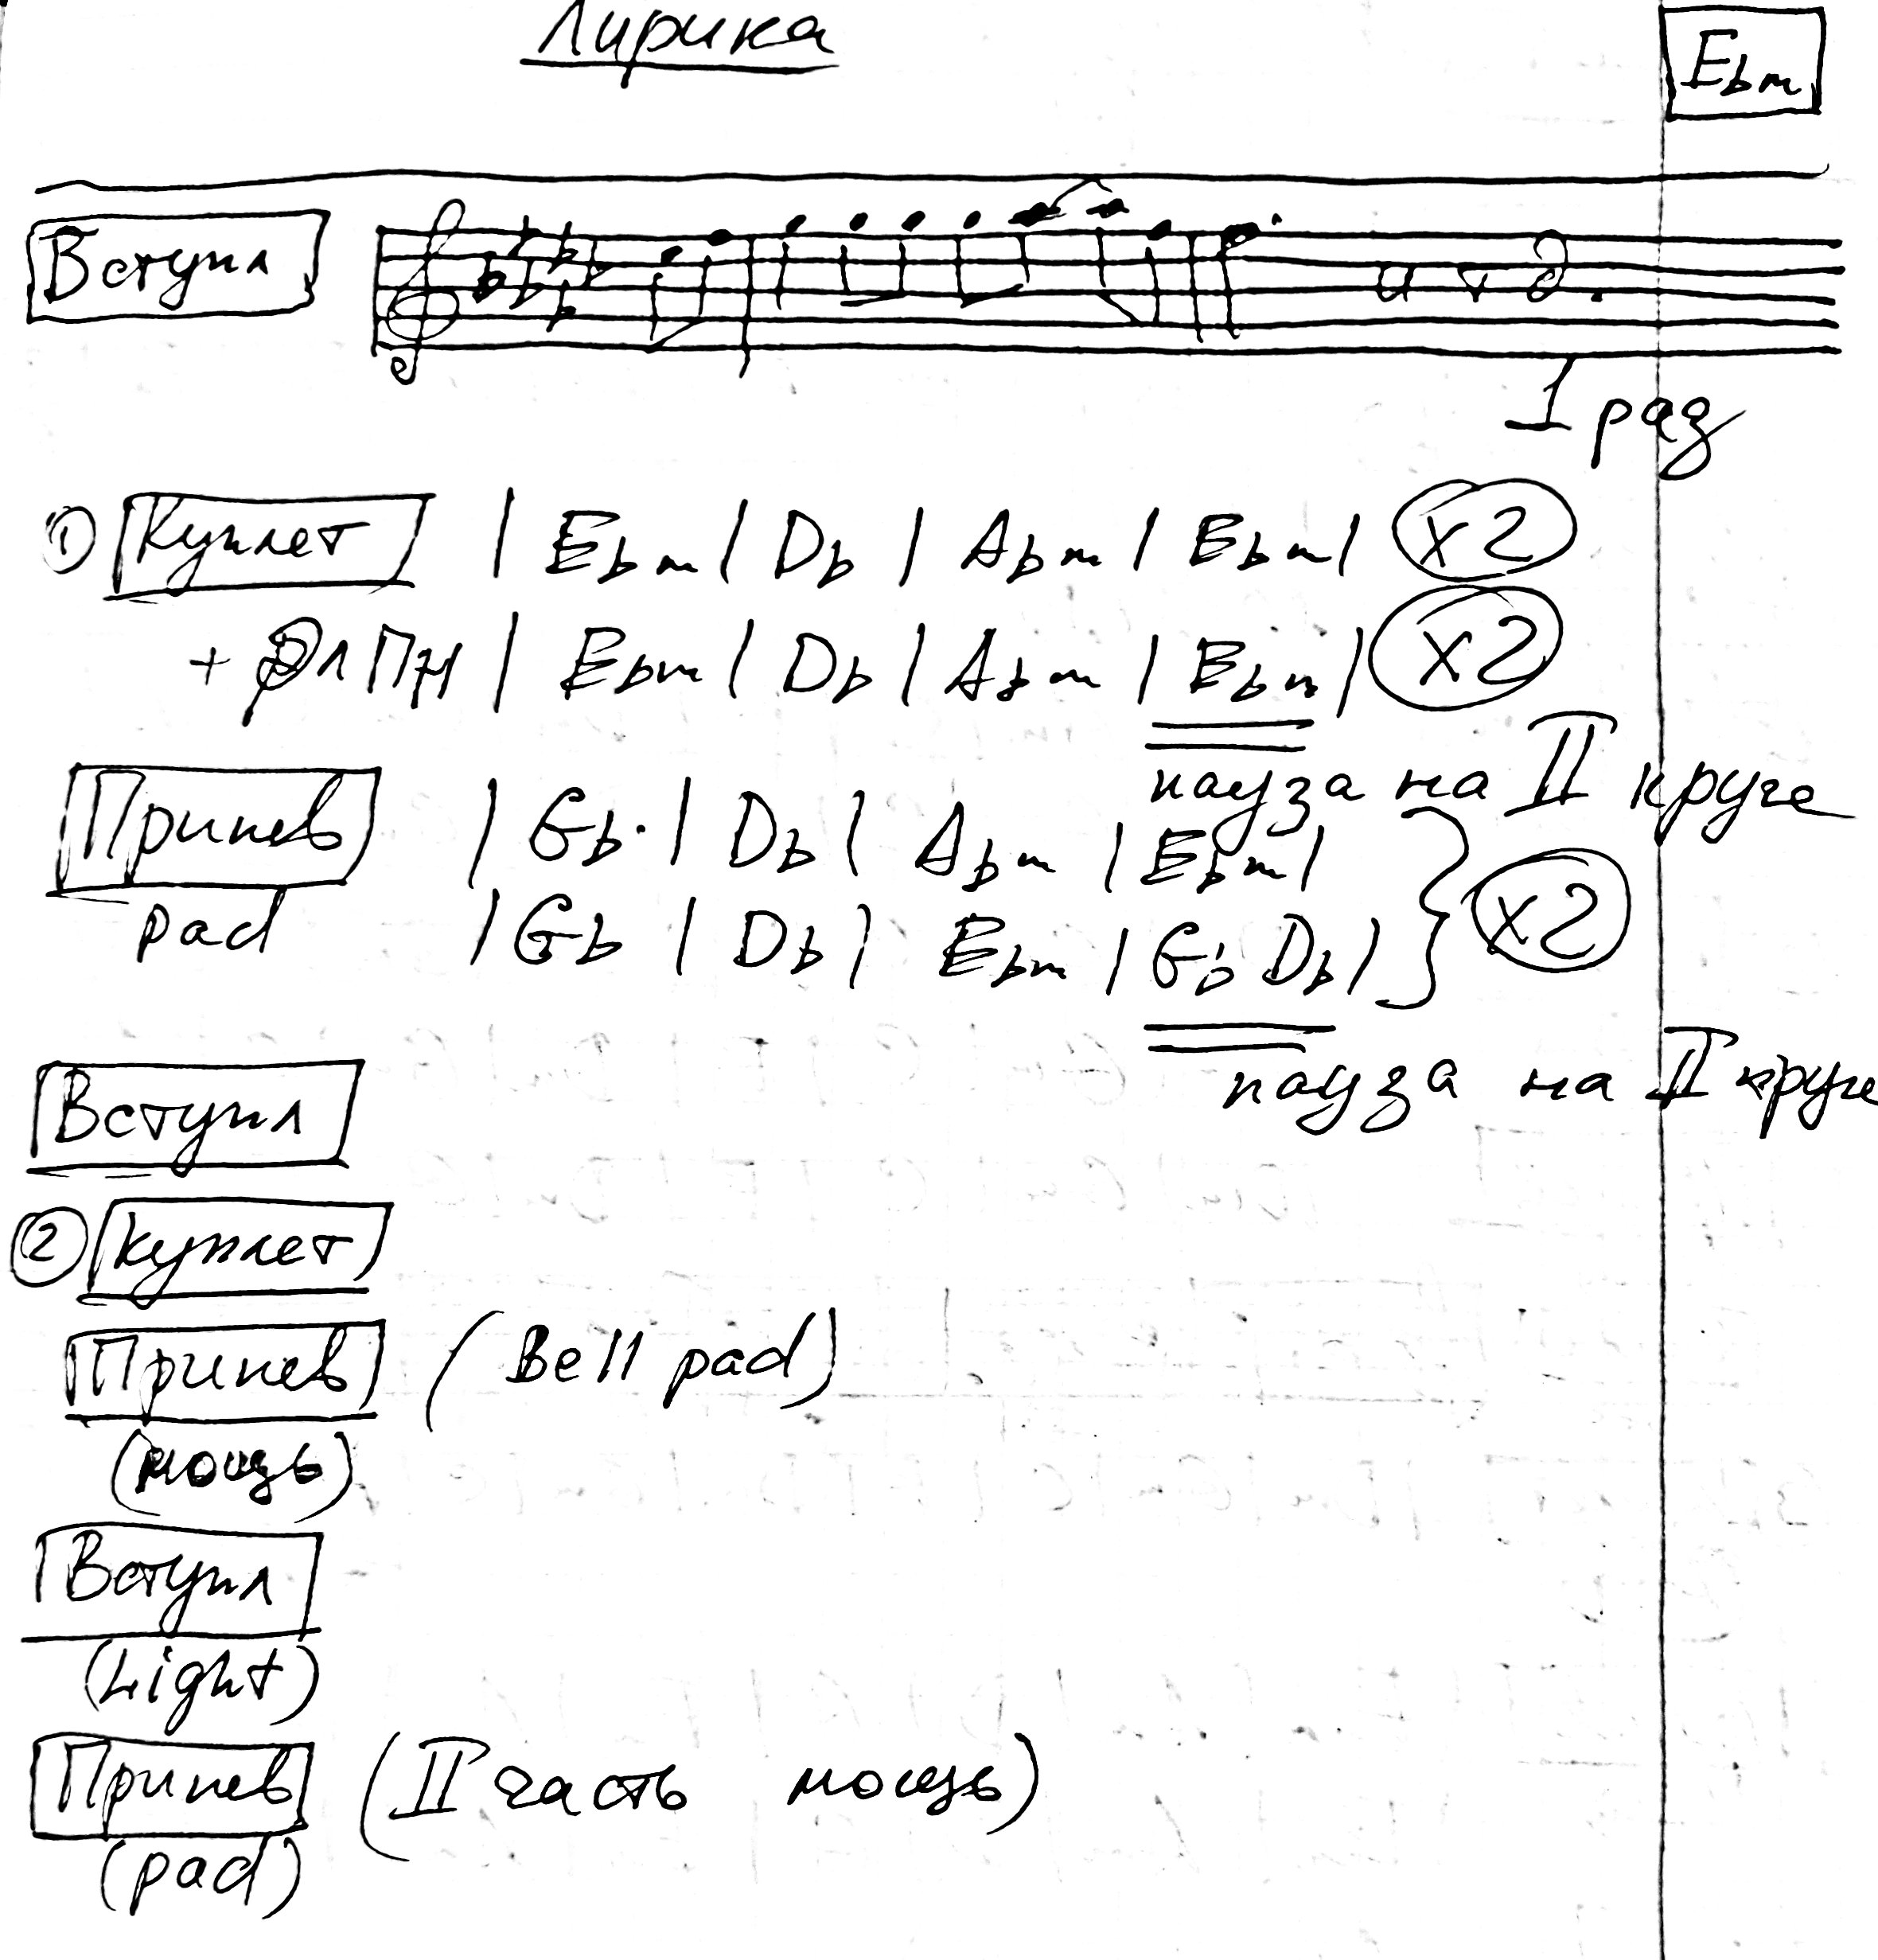 Лирика
Ebm
Вступл
1 раз
① Куплет | Ebm | Db | Abm | Ebm | x2
+ | Ebm | Db | Abm | Ebm | x2
пауза на II круге
Припев | Gb. | Db | Abm | Ebm |
pad | Gb | Db | Ebm | Gb Db | } x2
пауза на II круге
Вступл
② куплет
Припев (Bell pad)
(мощь)
Вступл
(Light)
Припев (II часть мощь)
(pad)